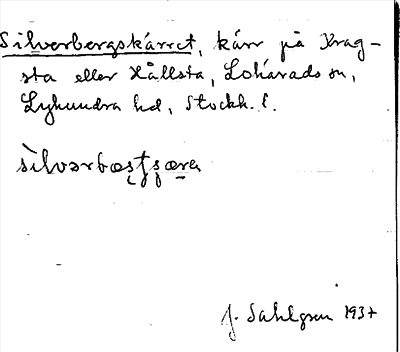 Silverbergskärret, kärr på Krag-
sta eller Hållsta, Lohärads sn,
Lyhundra hd, Stockh. l.
J. Sahlgren 1937